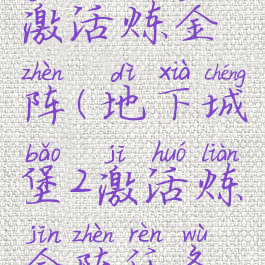 激活炼金
zhèn dì xià chéng
阵(地下城
bǎo jī huó liàn
堡2激活炼
jīn zhèn rèn wù
金阵任务